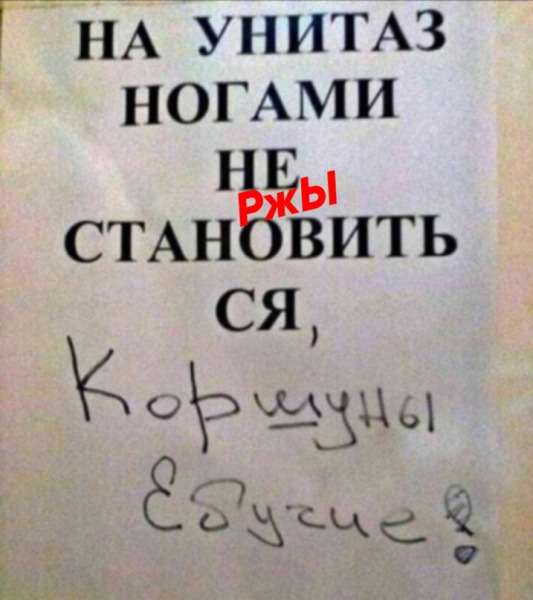 НА УНИТАЗ
НОГАМИ
НЕ
РЖЫ
СТАНОВИТЬ
СЯ,
Коршуны
Ебучие!